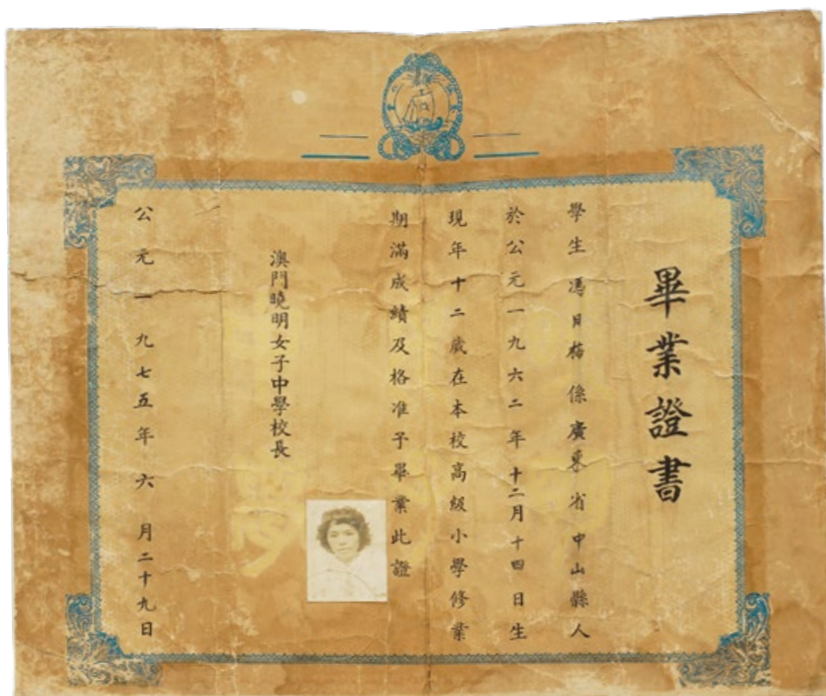 畢業證書
學生馮月梅係廣東省中山縣人
於公元一九六二年十二月十四日生
現年十二歲在本校高級小學修業
期滿成績及格准予畢業此證
澳門曉明女子中學校長
公元一九七五年六月二十九日